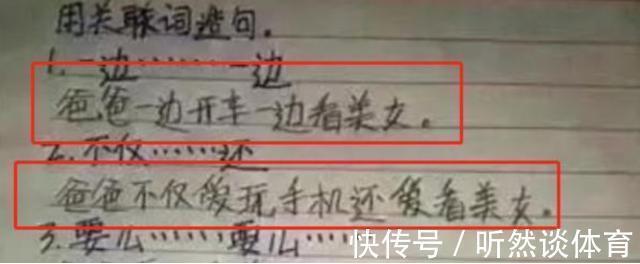 用关联词造句。
1.一边……一边
爸爸一边开车一边看美女。
2.不仅……还
爸爸不仅爱玩手机还爱看美女。
3.要么……要么……
快传号/听然谈体育